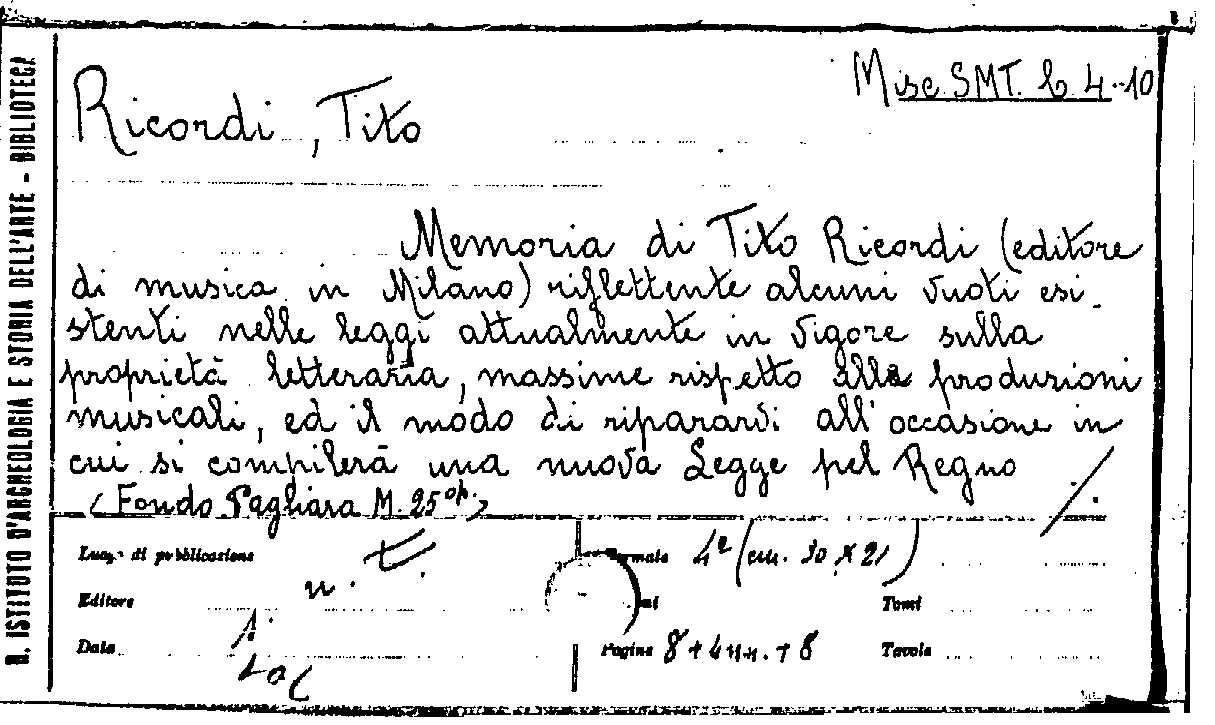 R. ISTITUTO D'ARCHEOLOGIA E STORIA DELL'ARTE - BIBLIOTECA
Misc SMT. b 4.-10
Ricordi, Tito
Memoria di Tito Ricordi (editore
di musica in Milano) riflettente alcuni vuoti esi-
stenti nelle leggi attualmente in vigore sulla
proprietà letteraria, massime rispetto alle produzioni
musicali, ed il modo di ripararvi all'occasione in
cui si compilerà una nuova Legge pel Regno
(Fondo Pagliara M. 25 op.) ./.
Luogo di pubblicazione
Formato 4º (cm. 30 x 21)
n. t.
Editore
Tomi
Data
Pagine 8+4nn.+8
Tavole